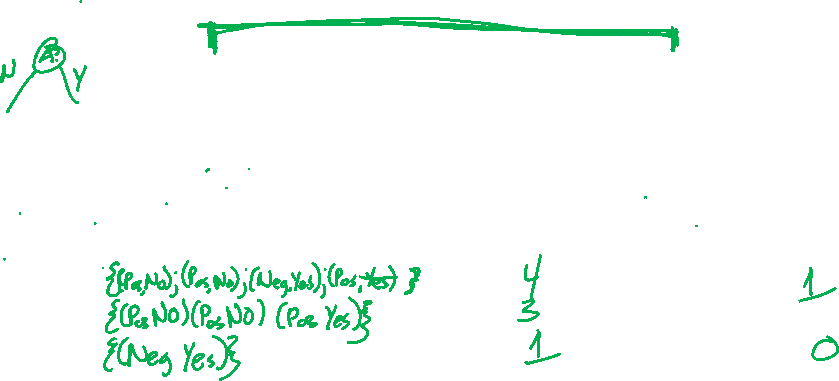 N Y
{(Pos,No);(Pos,No);(Neg,Yes);(Pos,Yes)} 4 1
{(Pos No)(Pos No) (Pos Yes)} 3
{(Neg Yes)} 1 0